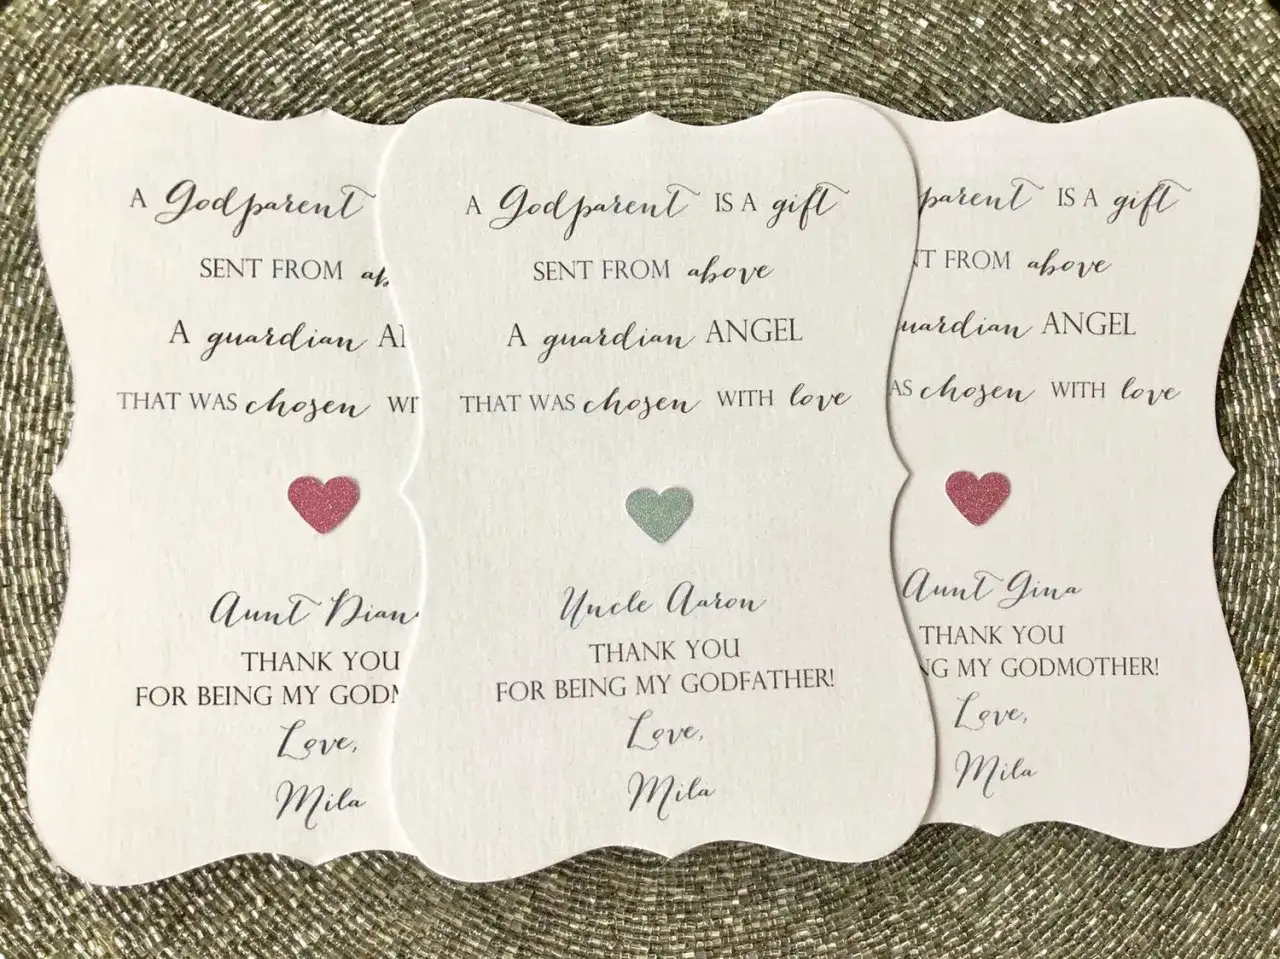 A Godparent
SENT FROM
A guardian
THAT WAS chosen
Aunt
THANK YOU
FOR BEING MY
Love,
Mila
A Godparent IS A gift
SENT FROM above
A guardian ANGEL
THAT WAS chosen WITH love
Uncle Aaron
THANK YOU
FOR BEING MY GODFATHER!
Love,
Mila
parent IS A gift
FROM above
ANGEL
chosen WITH love
Aunt Gina
THANK YOU
MY GODMOTHER!
Love,
Mila